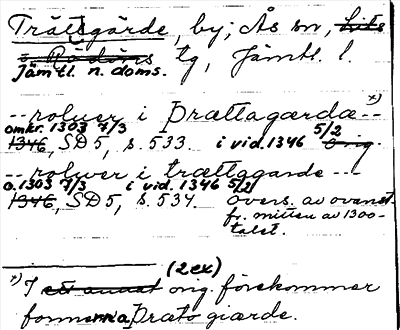 Trättgärde, by; Ås sn, Lits
o Rödöns tg, Jämtl. l.
Jämtl. n. doms.
-- roluer i Þrættagærdæ x) --
omkr. 1303 7/3 i vid. 1346 5/2
1346, SD 5, s. 533. orig.
-- roluer i trættggarde ---
o. 1303 7/3 i vid. 1346 5/2
1346, SD 5, s. 534. övers. av ovanst.
fr. mitten av 1300-
talet.
(2 ex)
x) I ett annat orig. förekommer
formerna Þrætogiærde.